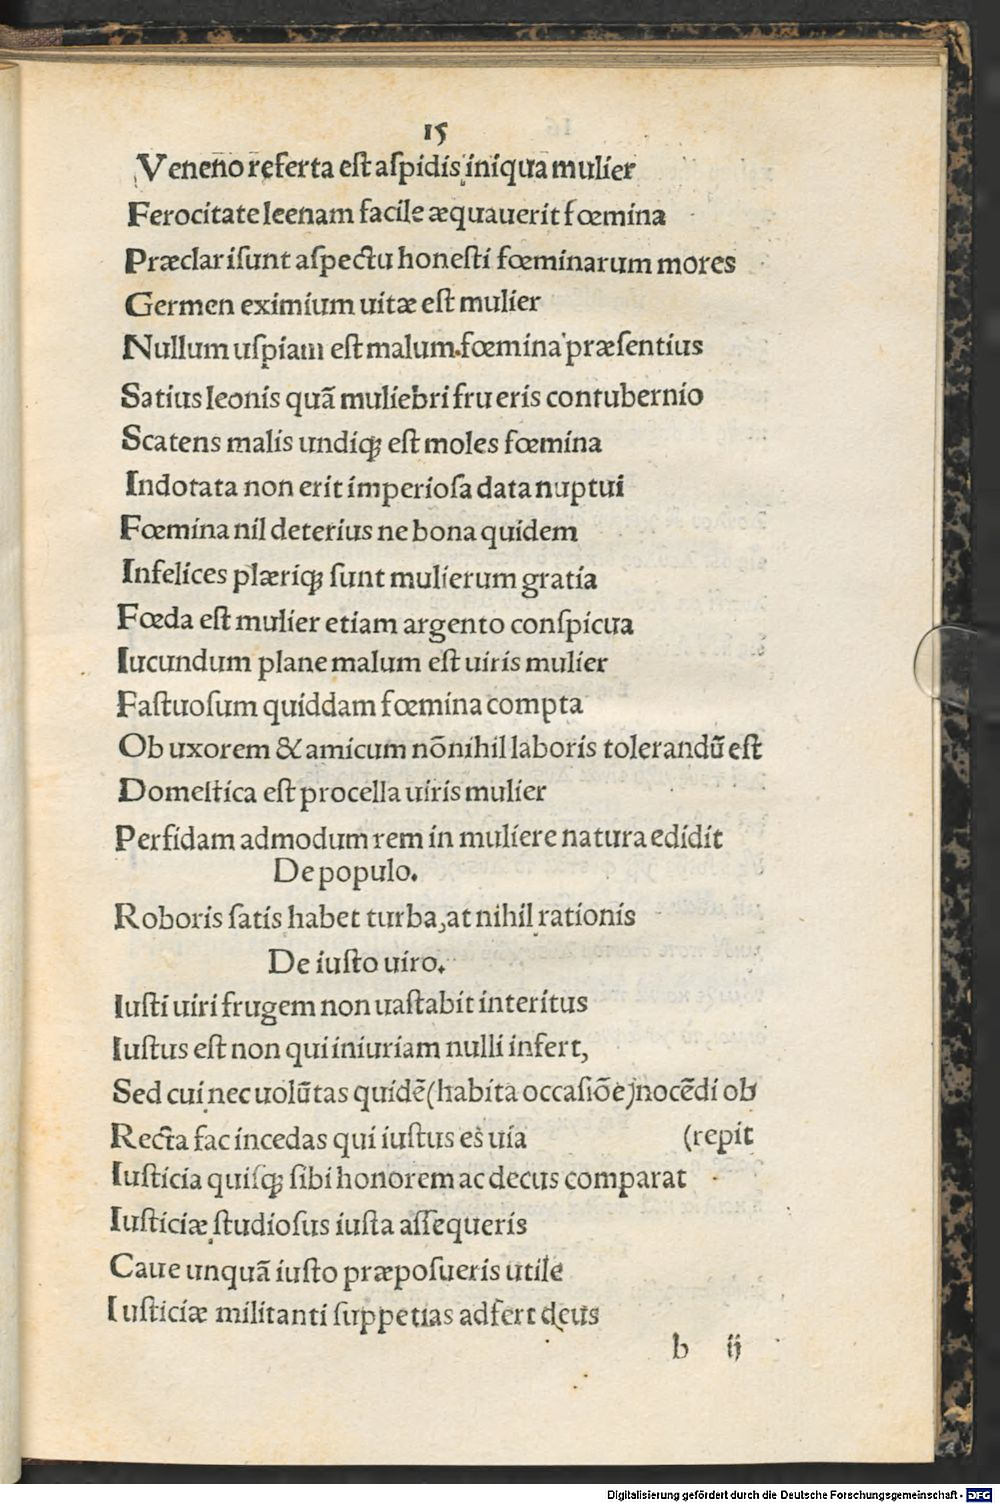 15
Veneno referta eſt aſpidis iniqua mulier
Ferocitate leenam facile æquauerit fœmina
Præclari ſunt aſpectu honeſti fœminarum mores
Germen eximium uitæ eſt mulier
Nullum uſpiam eſt malum.fœmina præſentius
Satius leonis quã muliebri frueris contubernio
Scatens malis undiqꝫ eſt moles fœmina
Indotata non erit imperioſa data nuptui
Fœmina nil deterius ne bona quidem
Infelices plæriqꝫ ſunt mulierum gratia
Fœda eſt mulier etiam argento conſpicua
Iucundum plane malum eſt uiris mulier
Faſtuoſum quiddam fœmina compta
Ob uxorem & amicum nõnihil laboris tolerandũ eſt
Domeſtica eſt procella uiris mulier
Perfidam admodum rem in muliere natura edidit
De populo.
Roboris ſatis habet turba, at nihil rationis
De iuſto uiro.
Iuſti uiri frugem non uaſtabit interitus
Iuſtus eſt non qui iniuriam nulli infert,
Sed cui nec uolũtas quidẽ (habita occaſiõe) nocẽdi ob
Recta fac incedas qui iuſtus es uia (repit
Iuſticia quiſqꝫ ſibi honorem ac decus comparat
Iuſticiæ ſtudioſus iuſta aſſequeris
Caue unquã iuſto præpoſueris utile
Iuſticiæ militanti ſuppetias adfert deus
b ij
Digitalisierung gefördert durch die Deutsche Forschungsgemeinschaft - DFG